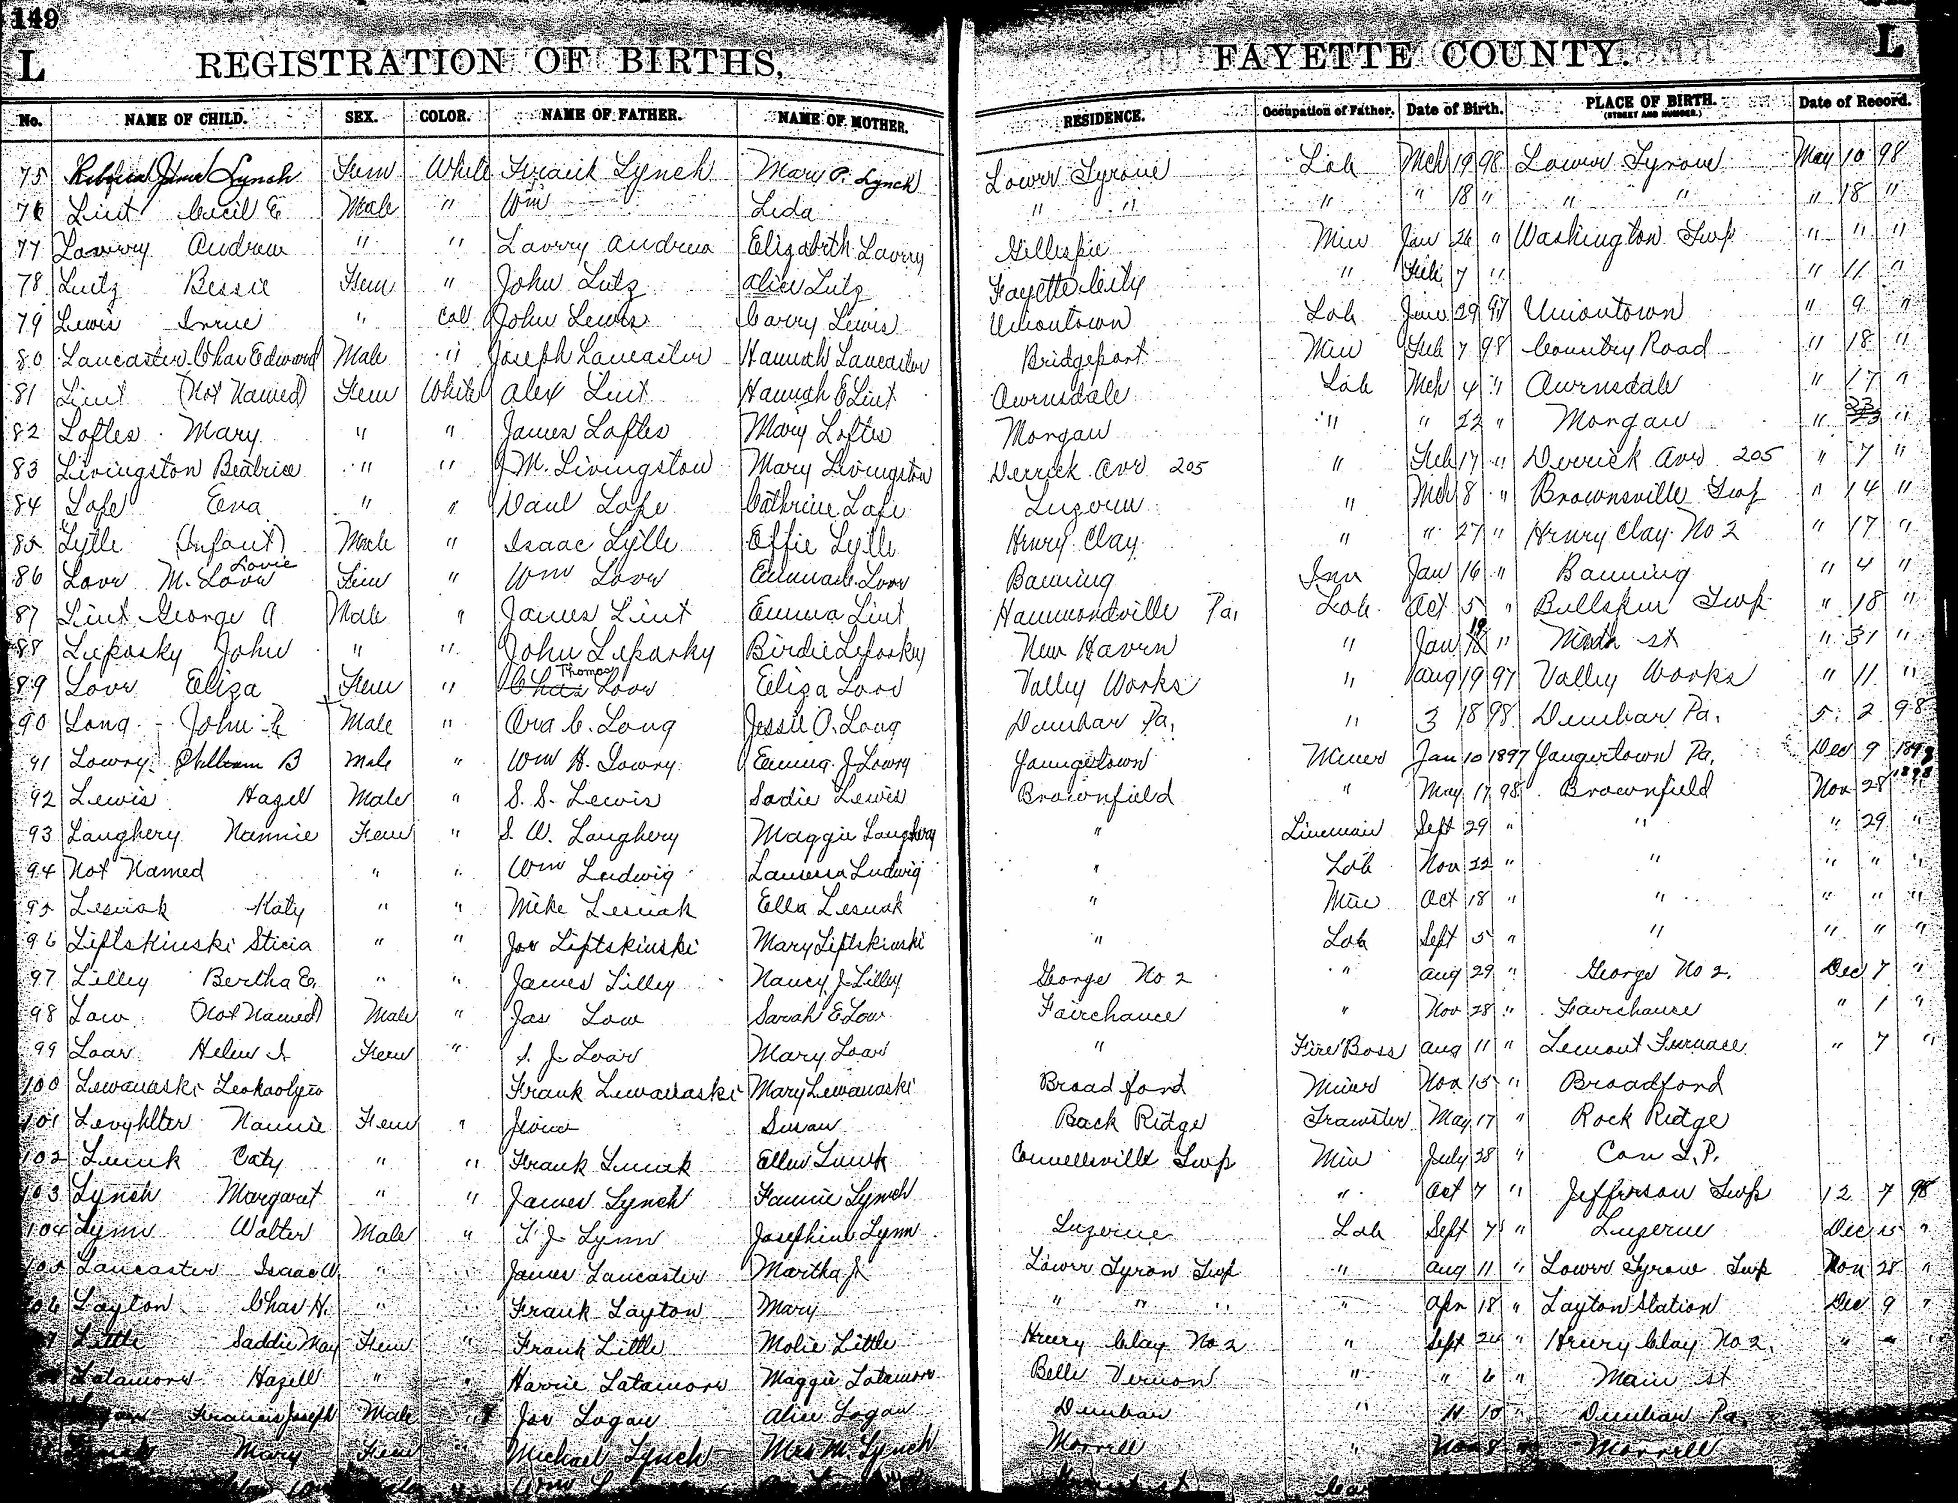 149
L REGISTRATION OF BIRTHS, FAYETTE COUNTY. L
No. NAME OF CHILD. SEX. COLOR. NAME OF FATHER. NAME OF MOTHER. RESIDENCE. Occupation of Father. Date of Birth. PLACE OF BIRTH. (STREET AND NUMBER.) Date of Record.
75 Lynch Fem White Frank Lynch Mary P. Lynch Lower Tyrone Lab Mch 19 98 Lower Tyrone May 10 98
76 Lint Cecil E Male " Wm Lida " " " " 18 " " " " 18 "
77 Lavery Andrew " " Lavery Andrew Elizabeth Lavery Gillespie Min Jan 26 " Washington Twp " " "
78 Lutz Bessie Fem " John Lutz Alice Lutz Fayette City " Feb 7 " " 11 "
79 Lewis Irene " Col John Lewis Carry Lewis Uniontown Lab June 29 97 Uniontown " 9 "
80 Lancaster Chas Edward Male " Joseph Lancaster Hannah Lancaster Bridgeport Min Feb 7 98 Country Road " 18 "
81 Lint (Not Named) Fem White Alex Lint Hannah E Lint Owensdale Lab Mch 4 " Owensdale " 17 "
82 Loftes Mary " " James Loftes Mary Loftes Morgan " " 22 " Morgan " 23 "
83 Livingston Beatrice " " J. M. Livingston Mary Livingston Derrick Ave 205 " Feb 17 " Derrick Ave 205 " 7 "
84 Lope Eva " " Paul Lope Cathrine Lope Luzern " Mch 8 " Brownsville Twp " 14 "
85 Lytle (Infant) Male " Isaac Lytle Effie Lytle Henry Clay " " 27 " Henry Clay No 2 " 17 "
86 Love M. Lovie Fem " Wm Love Emma C. Love Banning Jan 16 " Banning " 4 "
87 Lint George A Male " James Lint Emma Lint Hammondville Pa. Lab Oct 5 " Bullskin Twp " 18 "
88 Leposky John " " John Leposky Birdie Leposky New Haven " Jan 19 " Main st " 31 "
89 Love Eliza Fem " Thomas Love Eliza Love Valley Works " Aug 19 97 Valley Works " 11 "
90 Long John E Male " Ora C. Long Jessie O. Long Dunbar Pa. " 3 18 98 Dunbar Pa. 5 2 98
91 Lowry William B Male " Wm H. Lowry Emma J Lowry Youngstown Miner Jan 10 1897 Youngstown Pa. Dec 9 1898
92 Lewis Hazel Male " S. S. Lewis Sadie Lewis Brownfield " May 17 98 Brownfield Nov 28 1898
93 Laughery Nannie Fem " S. W. Laughery Maggie Laughery " Lineman Sept 29 " " " 29 "
94 Not Named " " Wm Ludwig Ludwig " Lab Nov 22 " " " " "
95 Lesnak Katy " " Mike Lesnak Ella Lesnak " Min Oct 18 " " " " "
96 Liptskinski Sticia " " Joe Liptskinski Mary Liptskinski " Lab Sept 5 " " " " "
97 Lilley Bertha E. " " James Lilley Nancy J. Lilley George No 2 " Aug 29 " George No 2. Dec 7 "
98 Law (Not Named) Male " Jas Low Sarah E Low Fairchance " Nov 28 " Fairchance " 1 "
99 Loar Helen I Fem " S. J. Loar Mary Loar " Fire Boss Aug 11 " Lemont Furnace " 7 "
100 Lewanaski Frank Lewanaski Mary Lewanaski Broadford Miner Nov 15 " Broadford
101 Nannie Fem " Susan Back Ridge Teamster May 17 " Rock Ridge
102 Caty " " Frank Ellen Connellsville Twp Min July 28 "
103 Lynch Margaret " " James Lynch Fannie Lynch " Oct 7 " Jefferson Twp 12 7 98
104 Lynn Walter Male " T. J. Lynn Josephine Lynn Luzerne Lab Sept 7 " Luzerne Dec 15 "
105 Lancaster Isaac W. " " James Lancaster Martha J. Lower Tyron Twp " Aug 11 " Lower Tyrone Twp Nov 28 "
106 Layton Chas H. " " Frank Layton Mary " " " " Apr 18 " Layton Station Dec 9 "
Little Saddie May Fem " Frank Little Molie Little Henry Clay No 2 " Sept 24 " Henry Clay No 2. " " "
Latamore Hazell " " Harrie Latamore Maggie Latamore Belle Vernon " " 6 " Main st
Logan Francis Joseph Male " Joe Logan Alice Logan Dunbar " 11 10 " Dunbar Pa.
Lynch Mary Fem " Michael Lynch Mrs M. Lynch Morrell " Nov 8 Morrell